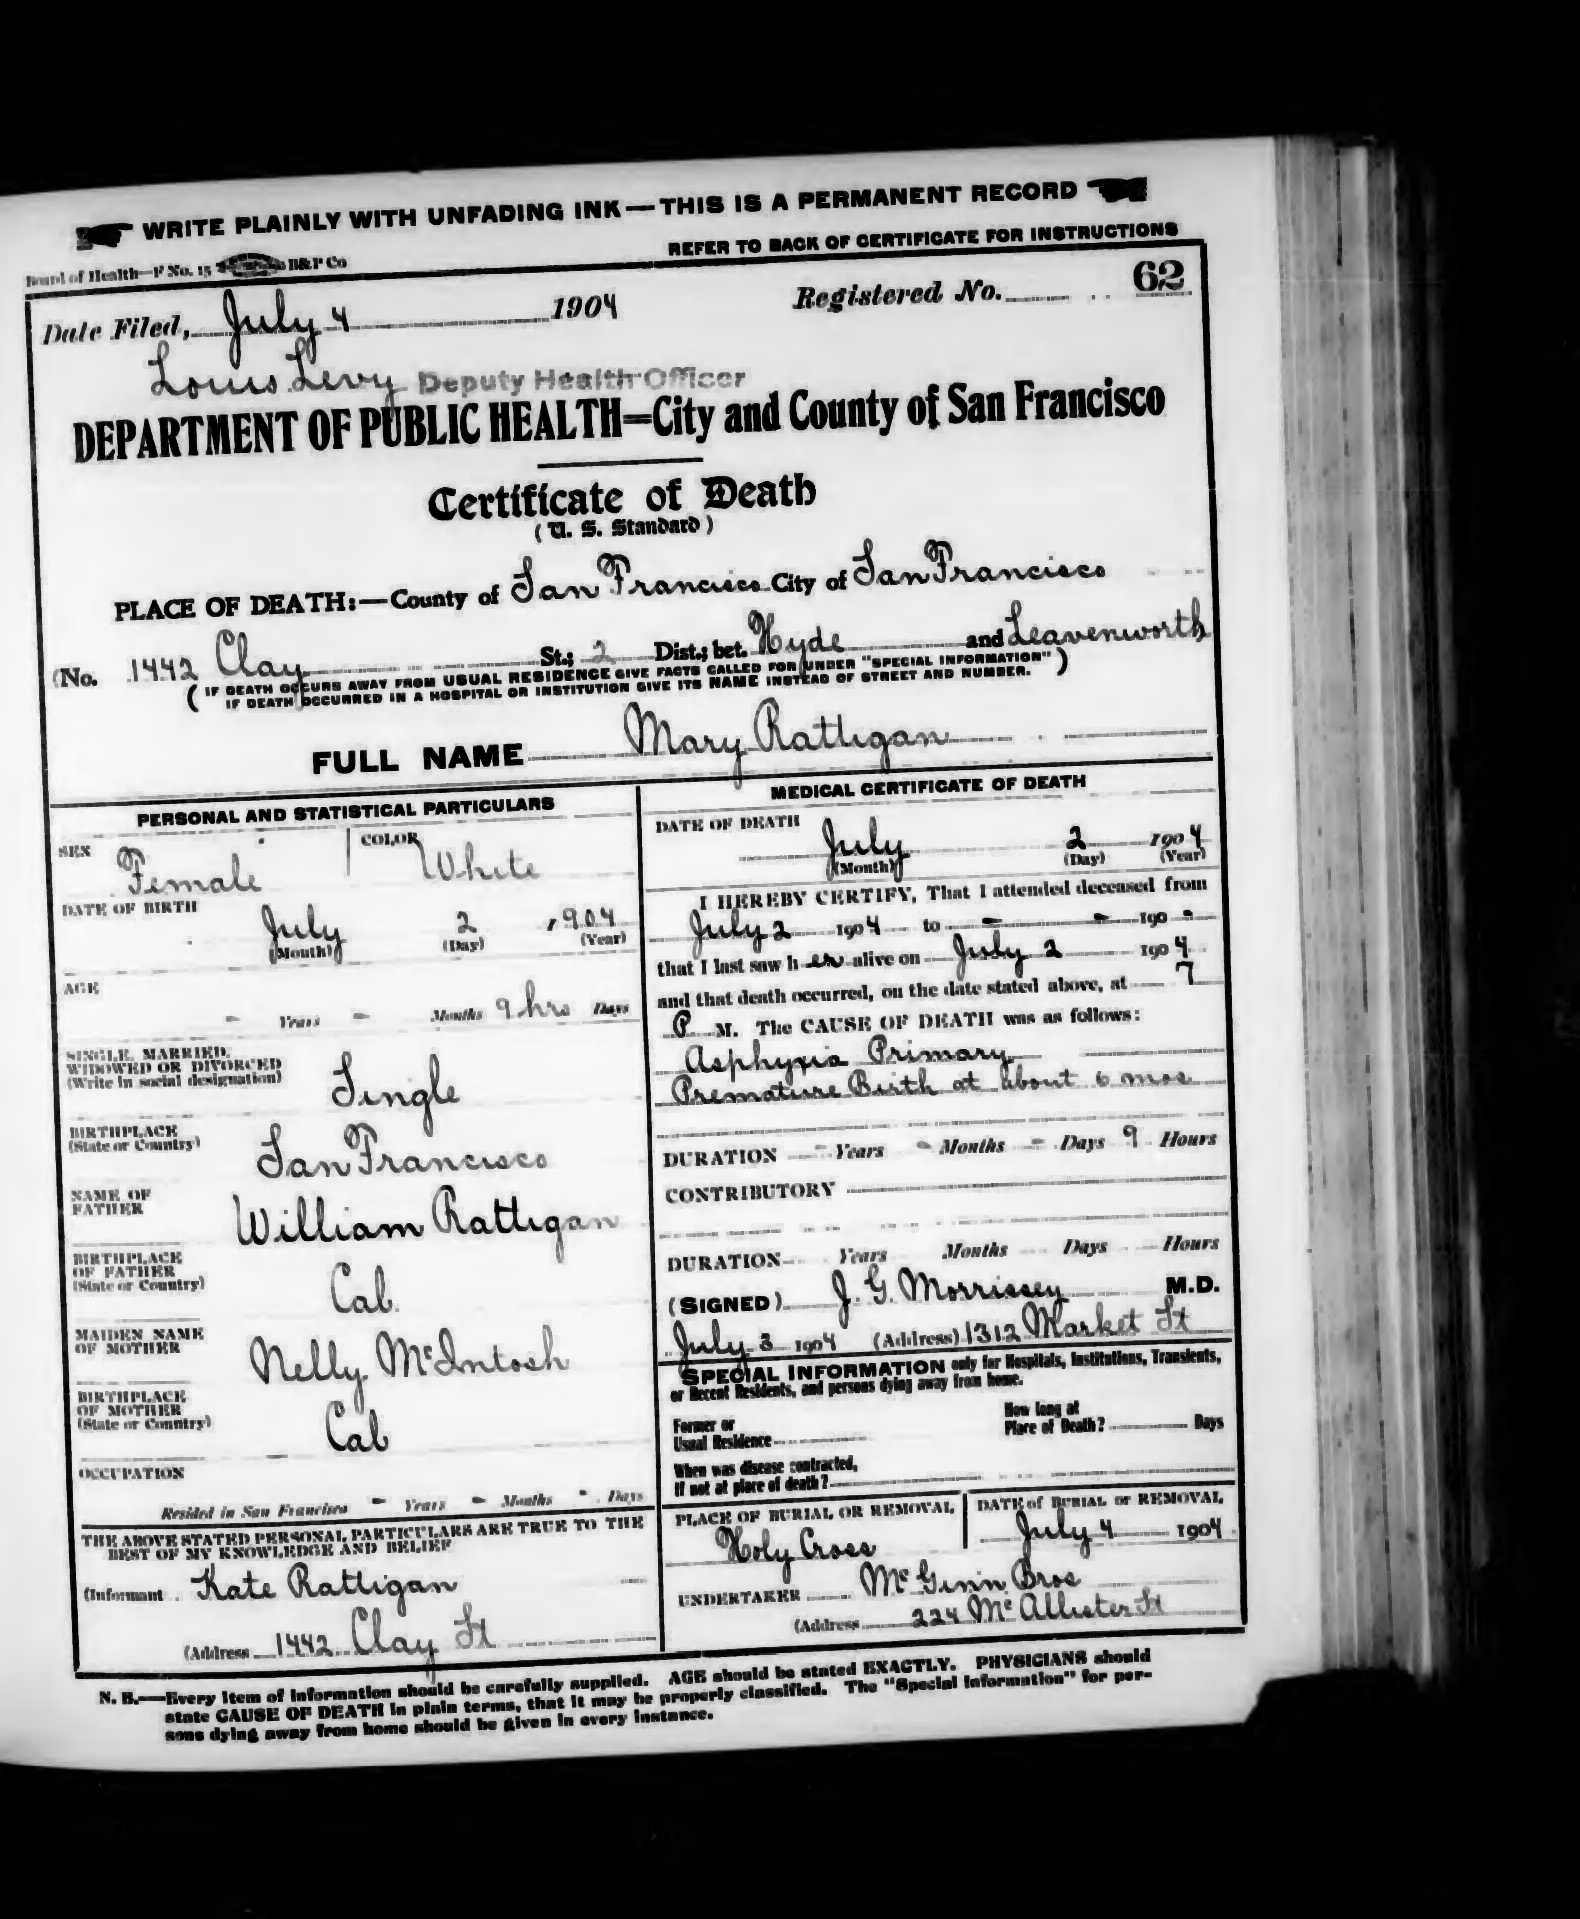 WRITE PLAINLY WITH UNFADING INK—THIS IS A PERMANENT RECORD
REFER TO BACK OF CERTIFICATE FOR INSTRUCTIONS
Board of Health—F No. 15 B&P Co
Date Filed, July 4 1904 Registered No. 62
Louis Levy Deputy Health Officer
DEPARTMENT OF PUBLIC HEALTH=City and County of San Francisco
Certificate of Death
(U. S. Standard)
PLACE OF DEATH:—County of San Francisco City of San Francisco
(No. 1442 Clay St.; 2 Dist.; bet. Hyde and Leavenworth
(IF DEATH OCCURS AWAY FROM USUAL RESIDENCE GIVE FACTS CALLED FOR UNDER "SPECIAL INFORMATION"
IF DEATH OCCURRED IN A HOSPITAL OR INSTITUTION GIVE ITS NAME INSTEAD OF STREET AND NUMBER.)
FULL NAME Mary Rattigan
PERSONAL AND STATISTICAL PARTICULARS
SEX Female COLOR White
DATE OF BIRTH
July 2 1904
(Month) (Day) (Year)
AGE
- Years - Months 9 hrs Days
SINGLE, MARRIED,
WIDOWED OR DIVORCED
(Write in social designation) Single
BIRTHPLACE
(State or Country) San Francisco
NAME OF
FATHER William Rattigan
BIRTHPLACE
OF FATHER
(State or Country) Cal.
MAIDEN NAME
OF MOTHER Nelly McIntosh
BIRTHPLACE
OF MOTHER
(State or Country) Cal
OCCUPATION
Resided in San Francisco - Years - Months - Days
THE ABOVE STATED PERSONAL PARTICULARS ARE TRUE TO THE
BEST OF MY KNOWLEDGE AND BELIEF
(Informant Kate Rattigan
(Address 1442 Clay St
MEDICAL CERTIFICATE OF DEATH
DATE OF DEATH
July 2 1904
(Month) (Day) (Year)
I HEREBY CERTIFY, That I attended deceased from
July 2 1904 to - - 190 -
that I last saw h er alive on July 2 1904
and that death occurred, on the date stated above, at 7
P M. The CAUSE OF DEATH was as follows:
Asphyxia Primary
Premature Birth at about 6 mos
DURATION - Years - Months - Days 9 Hours
CONTRIBUTORY
DURATION Years Months Days Hours
(SIGNED) J. G. Morrissey M.D.
July 3 1904 (Address) 1312 Market St
SPECIAL INFORMATION only for Hospitals, Institutions, Transients,
or Recent Residents, and persons dying away from home.
Former or
Usual Residence
How long at
Place of Death? Days
When was disease contracted,
If not at place of death?
PLACE OF BURIAL OR REMOVAL
Holy Cross
DATE of BURIAL or REMOVAL
July 4 1904
UNDERTAKER McGinn Bros
(Address 224 McAllister St
N. B.—Every item of information should be carefully supplied. AGE should be stated EXACTLY. PHYSICIANS should
state CAUSE OF DEATH in plain terms, that it may be properly classified. The "Special Information" for per-
sons dying away from home should be given in every instance.